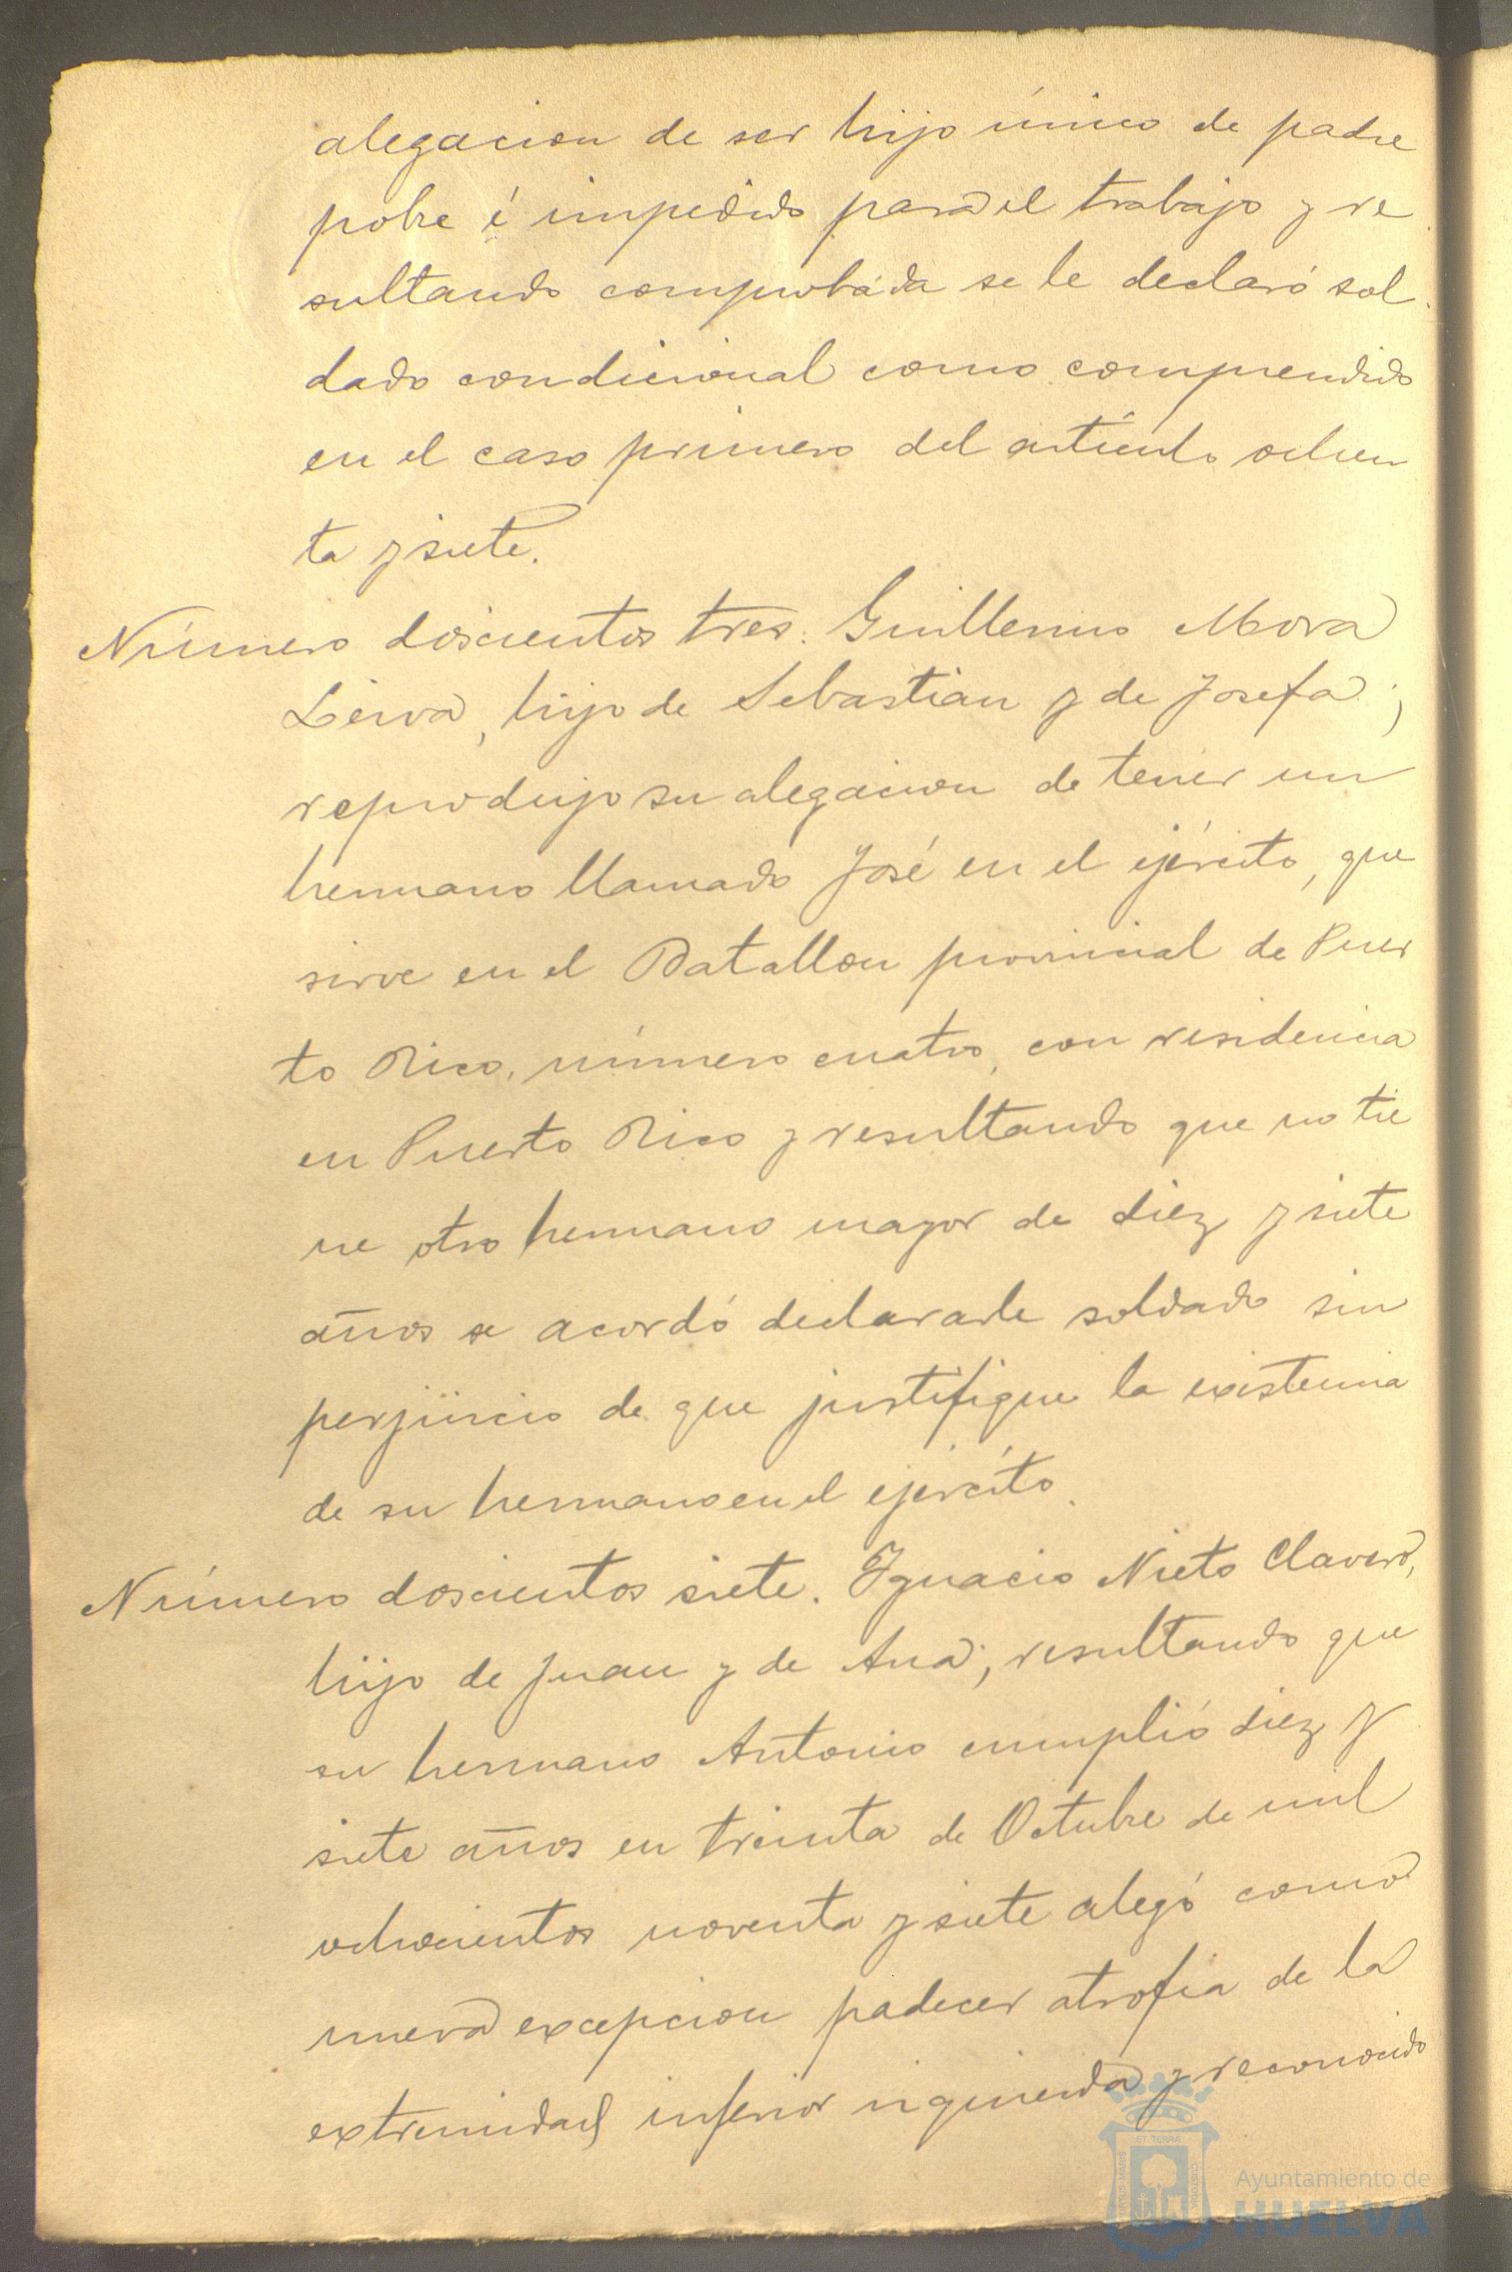 alegacion de ser hijo único de padre
pobre é impedido para el trabajo y re
sultando comprobada se le declaró sol
dado condicional como comprendido
en el caso primero del artículo ochen
ta y siete.
Número doscientos tres. Guillermo Mora
Leiva, hijo de Sebastian y de Josefa;
reprodujo su alegacion de tener un
hermano llamado José en el ejército, que
sirve en el Batallon provincial de Puer
to Rico, número cuatro, con residencia
en Puerto Rico y resultando que no tie
ne otro hermano mayor de diez y siete
años se acordó declararle soldado sin
perjuicio de que justifique la existencia
de su hermano en el ejército.
Número doscientos siete. Ignacio Nieto Clavero,
hijo de Juan y de Ana; resultando que
su hermano Antonio cumplió diez y
siete años en treinta de Octubre de mil
ochocientos noventa y siete alegó como
nueva excepcion padecer atrofia de la
extremidad inferior izquierda y reconocido
Ayuntamiento de
HUELVA